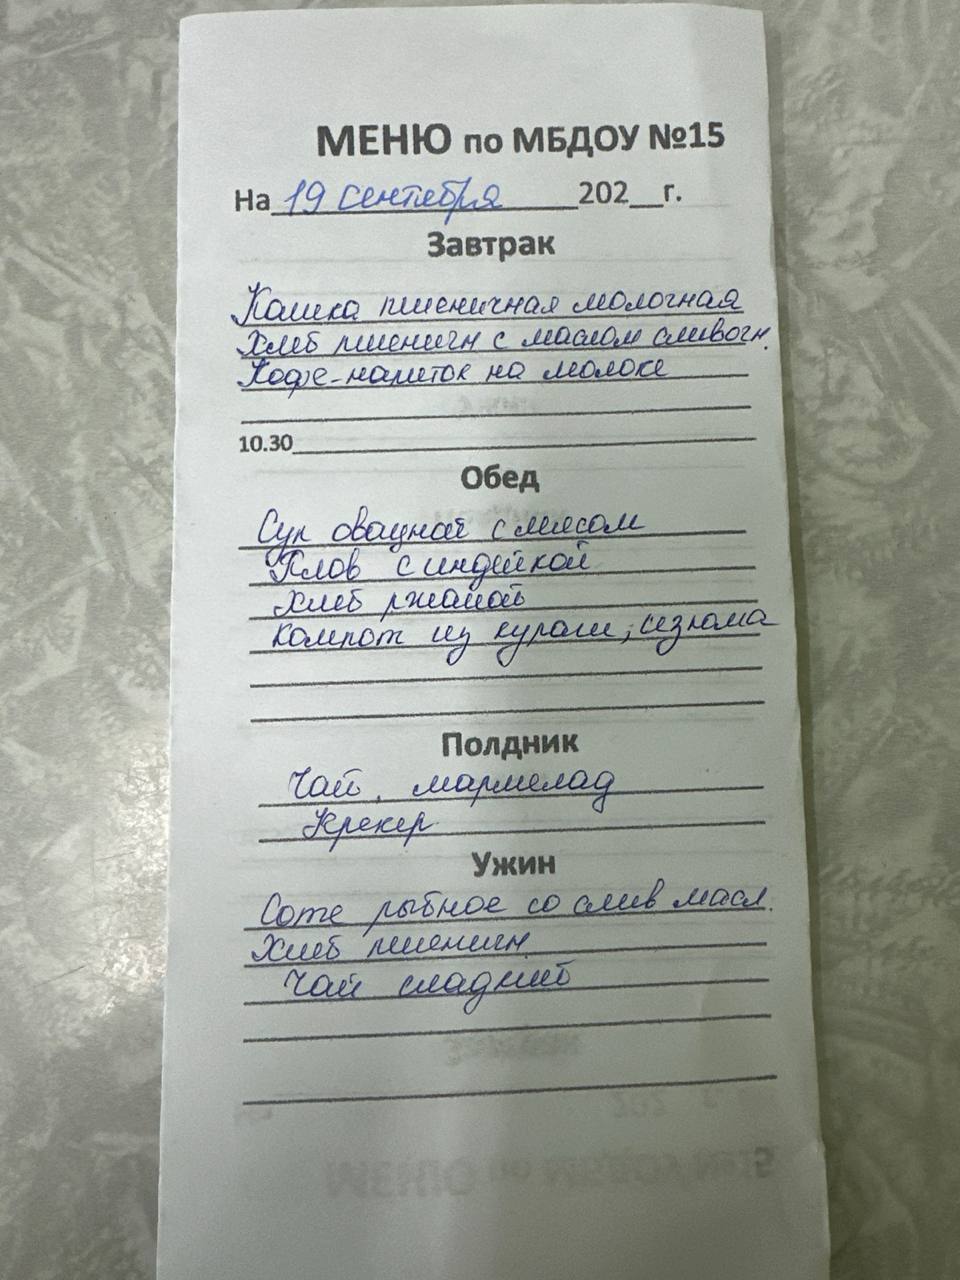 МЕНЮ по МБДОУ №15
На 19 сентября 202__г.
Завтрак
Кашка пшеничная молочная
Хлеб пшеничн с маслом сливочн.
Кофе-напиток на молоке
10.30
Обед
Суп овощной с мясом
Плов с индейкой
Хлеб ржаной
Компот из кураги, изюма
Полдник
Чай, мармелад
Крекер
Ужин
Соте рыбное со слив масл.
Хлеб пшеничн
Чай сладкий